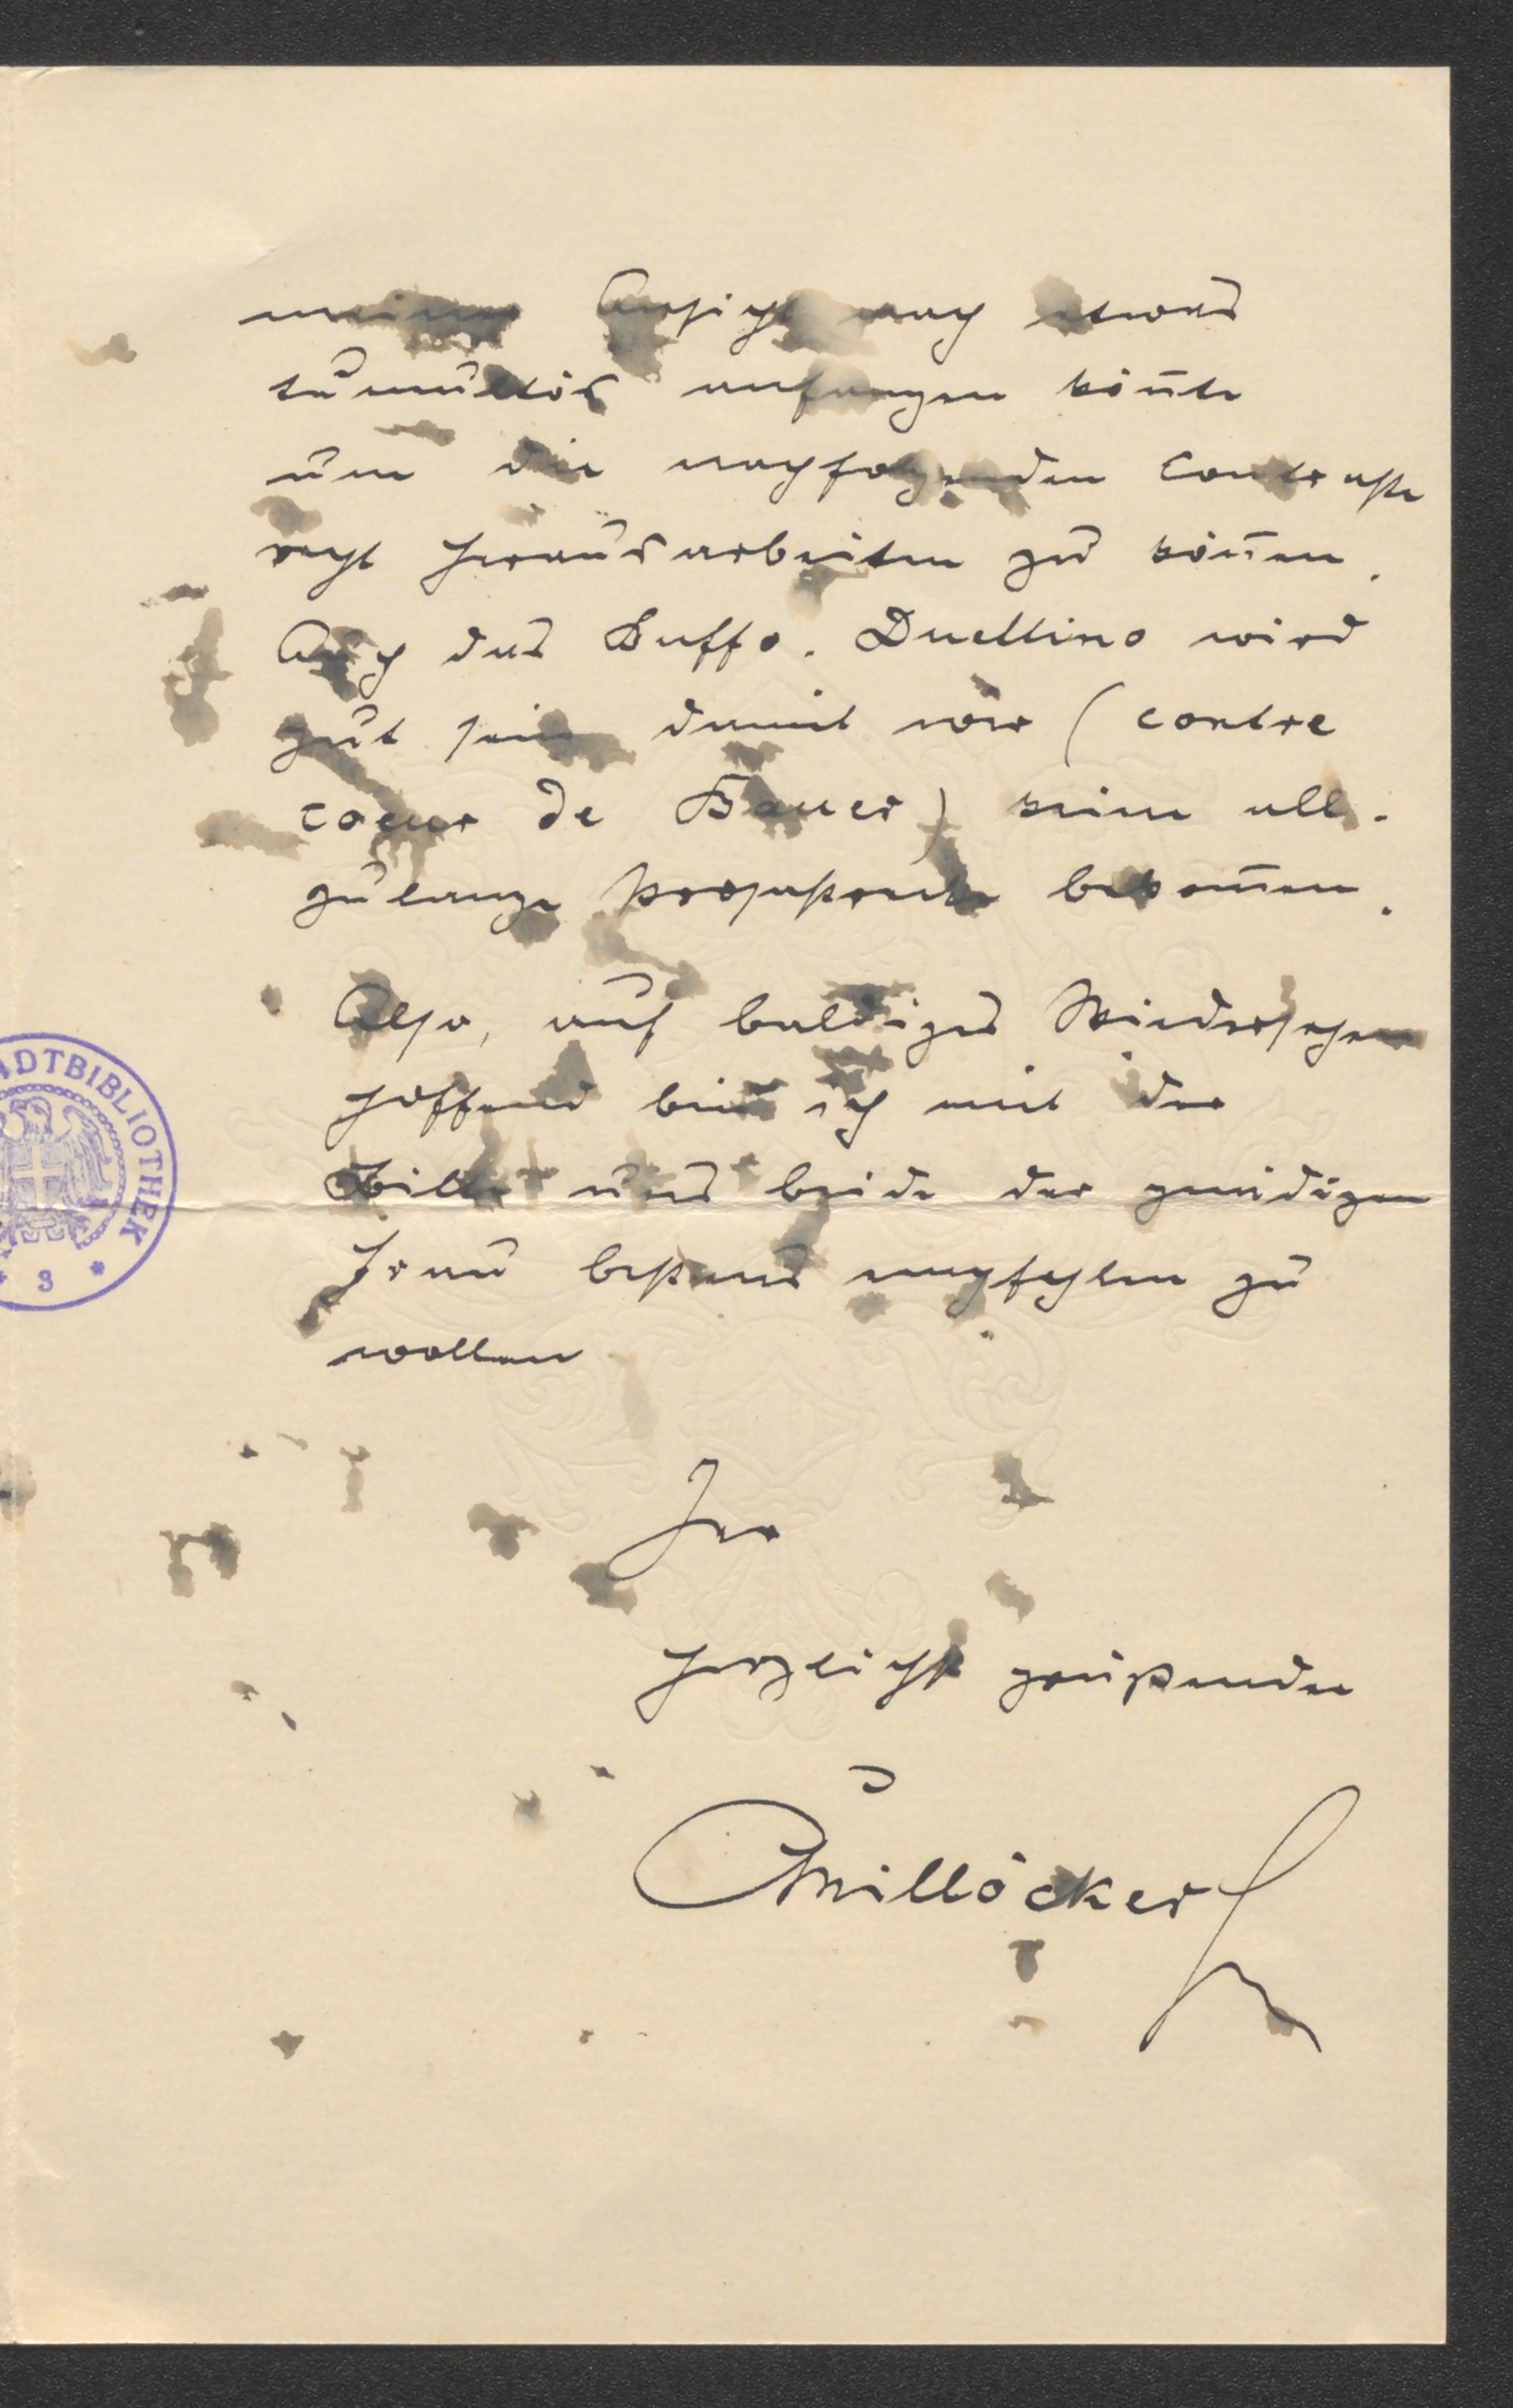 meiner Ansicht nach etwas
tumultös anfangen kön̅te
um die nachfolgenden Contraste
recht herausarbeiten zu kön̅en.
Auch das Buffo. Duettino wird
gut sein damit wir (contre
coeur de Bauer) keine all-
zulange Prosastrecke bekom̅en.
Also, auf baldiges Wiedersehen
hoffend bin ich mit der
Bitte uns beide der gnädigen
Frau bestens empfehlen zu
wollen
Ihr
herzlichst grüßender
CMillöcker
STADTBIBLIOTHEK
* 3 *